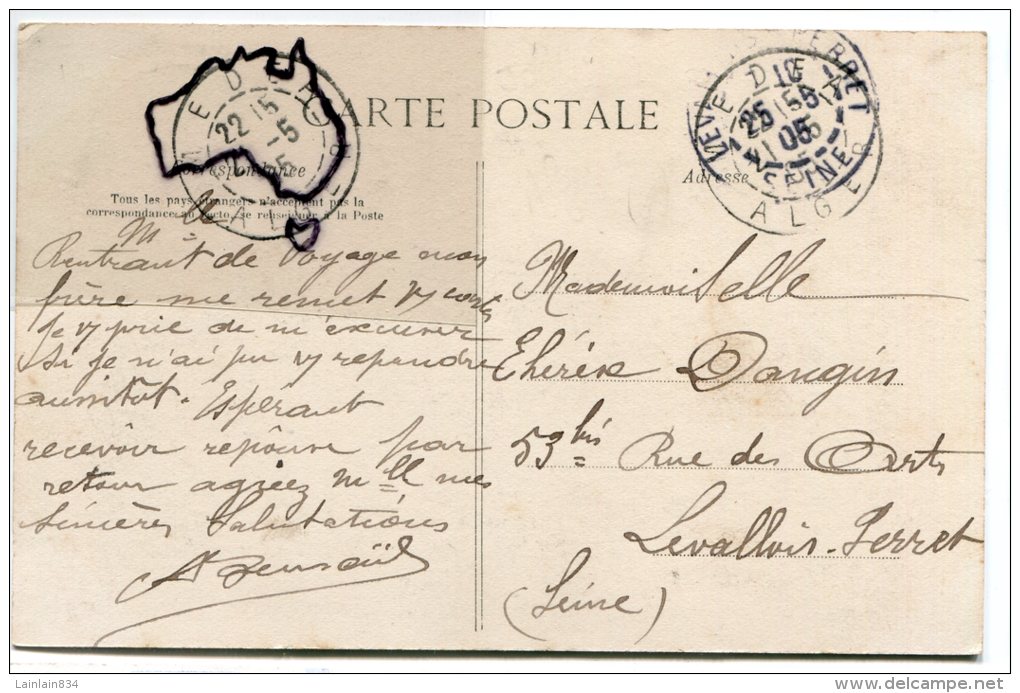 CARTE POSTALE
Correspondance
Tous les pays étrangers n'acceptent pas la
correspondance au recto, se renseigner à la Poste
Adresse
MEDEA
22 15
5
ALGER
LEVALLOIS-PERRET
SEINE
MEDEA
ALGER
Mlle
Rentrant de voyage mon
frère me remet v/ carte
Je v/ prie de m'excuser
Si je n'ai pu v/ repondre
aussitot. Esperant
recevoir reponse par
retour agréez Mlle mes
Sincères Salutations
Mademoiselle
Thérèse Dangin
53 bis Rue des Arts
Levallois-Perret
(Seine)
Lainlain834
delcampe.net